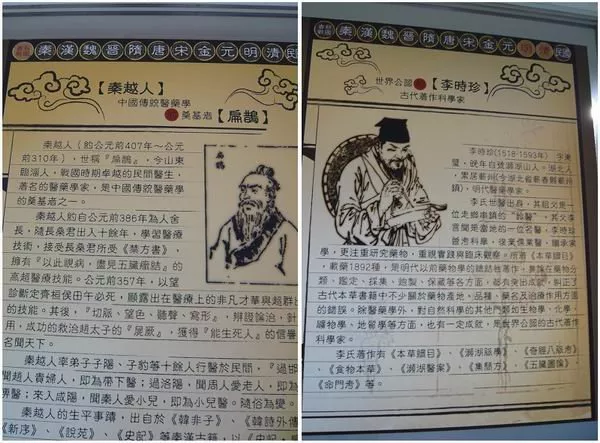 春秋戰國 秦 漢 魏 晉 隋 唐 宋 金 元 明 清 民
【秦越人】
中國傳統醫藥學
的 奠基者【扁鵲】
秦越人（約公元前407年～公元
前310年），世稱『扁鵲』，今山東
臨淄人，戰國時期卓越的民間醫生，
著名的醫藥學家，是中國傳統醫藥學
的奠基者之一。
秦越人約自公元前386年為人舍
長，隨長桑君出入十餘年，學習醫療
技術，接受長桑君所受《禁方書》，
擁有『以此視病，盡見五臟癥結』的
高超醫療技能。公元前357年，以望
診斷定齊桓侯田午必死，顯露出在醫療上的非凡才華與超群出
的技能。其後，『切脈、望色、聽聲、寫形』，辯證論治，針
用，成功的救治趙太子的『屍厥』，獲得『能生死人』的信譽
名聞天下。
秦越人率弟子子陽、子豹等十餘人行醫於民間，『過邯
聞趙人貴婦人，即為帶下醫；過洛陽，聞周人愛老人，即為
痺醫；來入咸陽，聞秦人愛小兒，即為小兒醫。隨俗為變。
秦越人的生平事蹟，出自於《韓非子》、《韓詩外傳
《新序》、《說苑》、《史記》等秦漢古籍，以《史記．
扁鵲
春秋戰國 秦 漢 魏 晉 隋 唐 宋 金 元 明 清 民
世界公認 的【李時珍】
古代著作科學家
李時珍(1518-1593年)，字東
璧，晚年自號瀕湖山人。湖北人
，累居蘄州(今湖北省蘄春縣蘄州
鎮)，明代醫藥學家。
李氏世醫出身，其祖父是一
位走鄉串鎮的“鈴醫”，其父李
言聞是當地的一位名醫，李時珍
繼
學，更注重研究藥物，重視實踐與臨床觀察。所著《本草綱目》
，載藥1892種，是明代以前藥學的總結性著作，無論在藥物分
類、鑑定、採集、炮製、保藏等各方面，都有突出成就，糾正了
古代本草書籍中不少關於藥物產地、品種、藥名及治療作用方面
的錯誤。除醫藥學外，對自然科學的其他門類如生物學、化學、
礦物學、地質學等方面，也有一定成就，是世界公認的古代著作
科學家。
李氏著作有《本草綱目》、《瀕湖脈學》、《奇經八脈考》
、《食物本草》、《瀕湖醫案》、《集簡方》、《五臟圖論》、
《命門考》等。